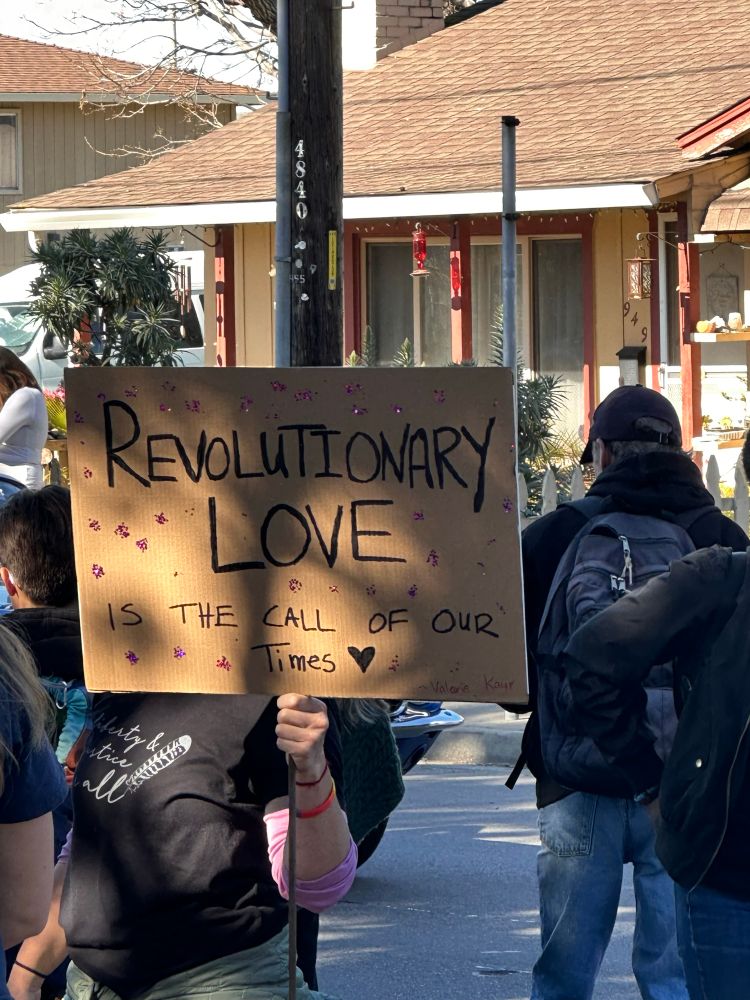 4840
949
REVOLUTIONARY
LOVE
IS THE CALL OF OUR
Times ♥
~ Valarie Kaur
liberty &
justice
all